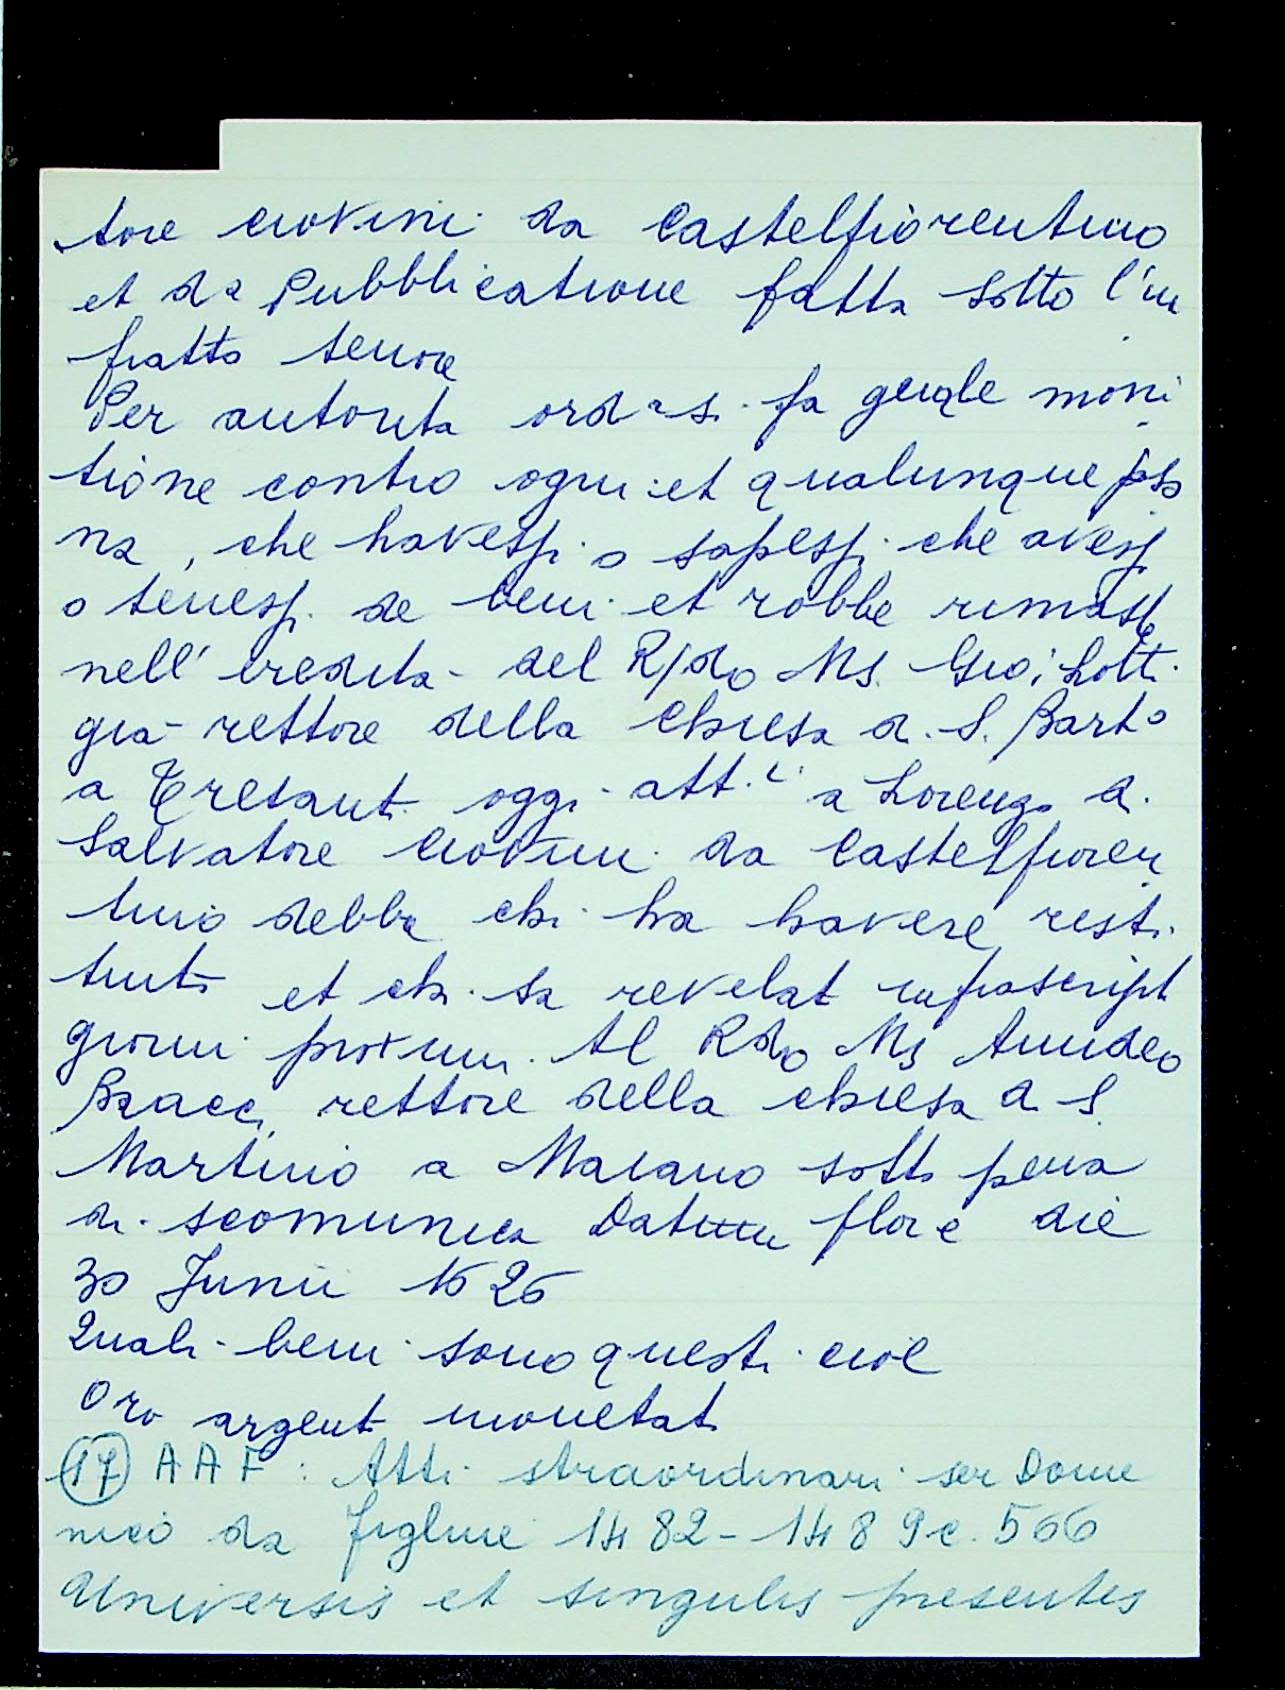 tore Ciovini da Castelfiorentino
et da Pubblicatione fatta sotto l'in
fratto tenore
Per autorita ord a s. fa genle moni
tione contro ogni et qualunque psо
na, che havessi o sapessi che avessi
o tenessi de beni et robbe rimaste
nell' eredita del R/do Ms. Gio: Lotti
gia rettore della Chiesa di S. Barto
a Tresanti oggi att.i a Lorenzo di
Salvatore Ciovini da Castelfioren
tino debba chi ha havere resti
tuito et chi sa revelat infrascript
giorni proximi Al Rdo Ms Amideo
Bracci rettore della chiesa di S.
Martino a Maiano sotto pena
di scomunica Datum flore die
30 Junii 1626
Quali beni sono questi cioe
Oro argent monetat
(17) AAF: Atti straordinari ser Dome
nico da Figline 1482-1489 c. 566
Universis et singulis presentes